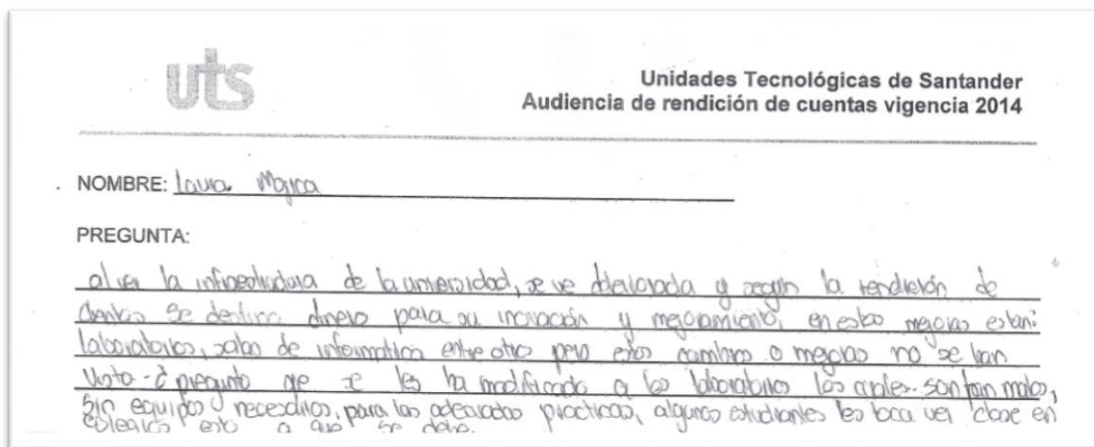 uts
Unidades Tecnológicas de Santander
Audiencia de rendición de cuentas vigencia 2014
NOMBRE: Laura Mojica
PREGUNTA:
al ver la infraestructura de la universidad, se ve deteriorada y según la rendición de
cuentas se destino dinero para su inovación y mejoramiento, en estas mejoras estan:
laboratorios, salas de informatica entre otro pero estos cambios o mejoras no se han
visto - ¿ pregunto que se les ha modificado a los laboratorios los cuales son tan malos,
sin equipos necesarios, para las adecuadas practicas, algunos estudiantes les toca ver clase en
colegios esto a que se debe.